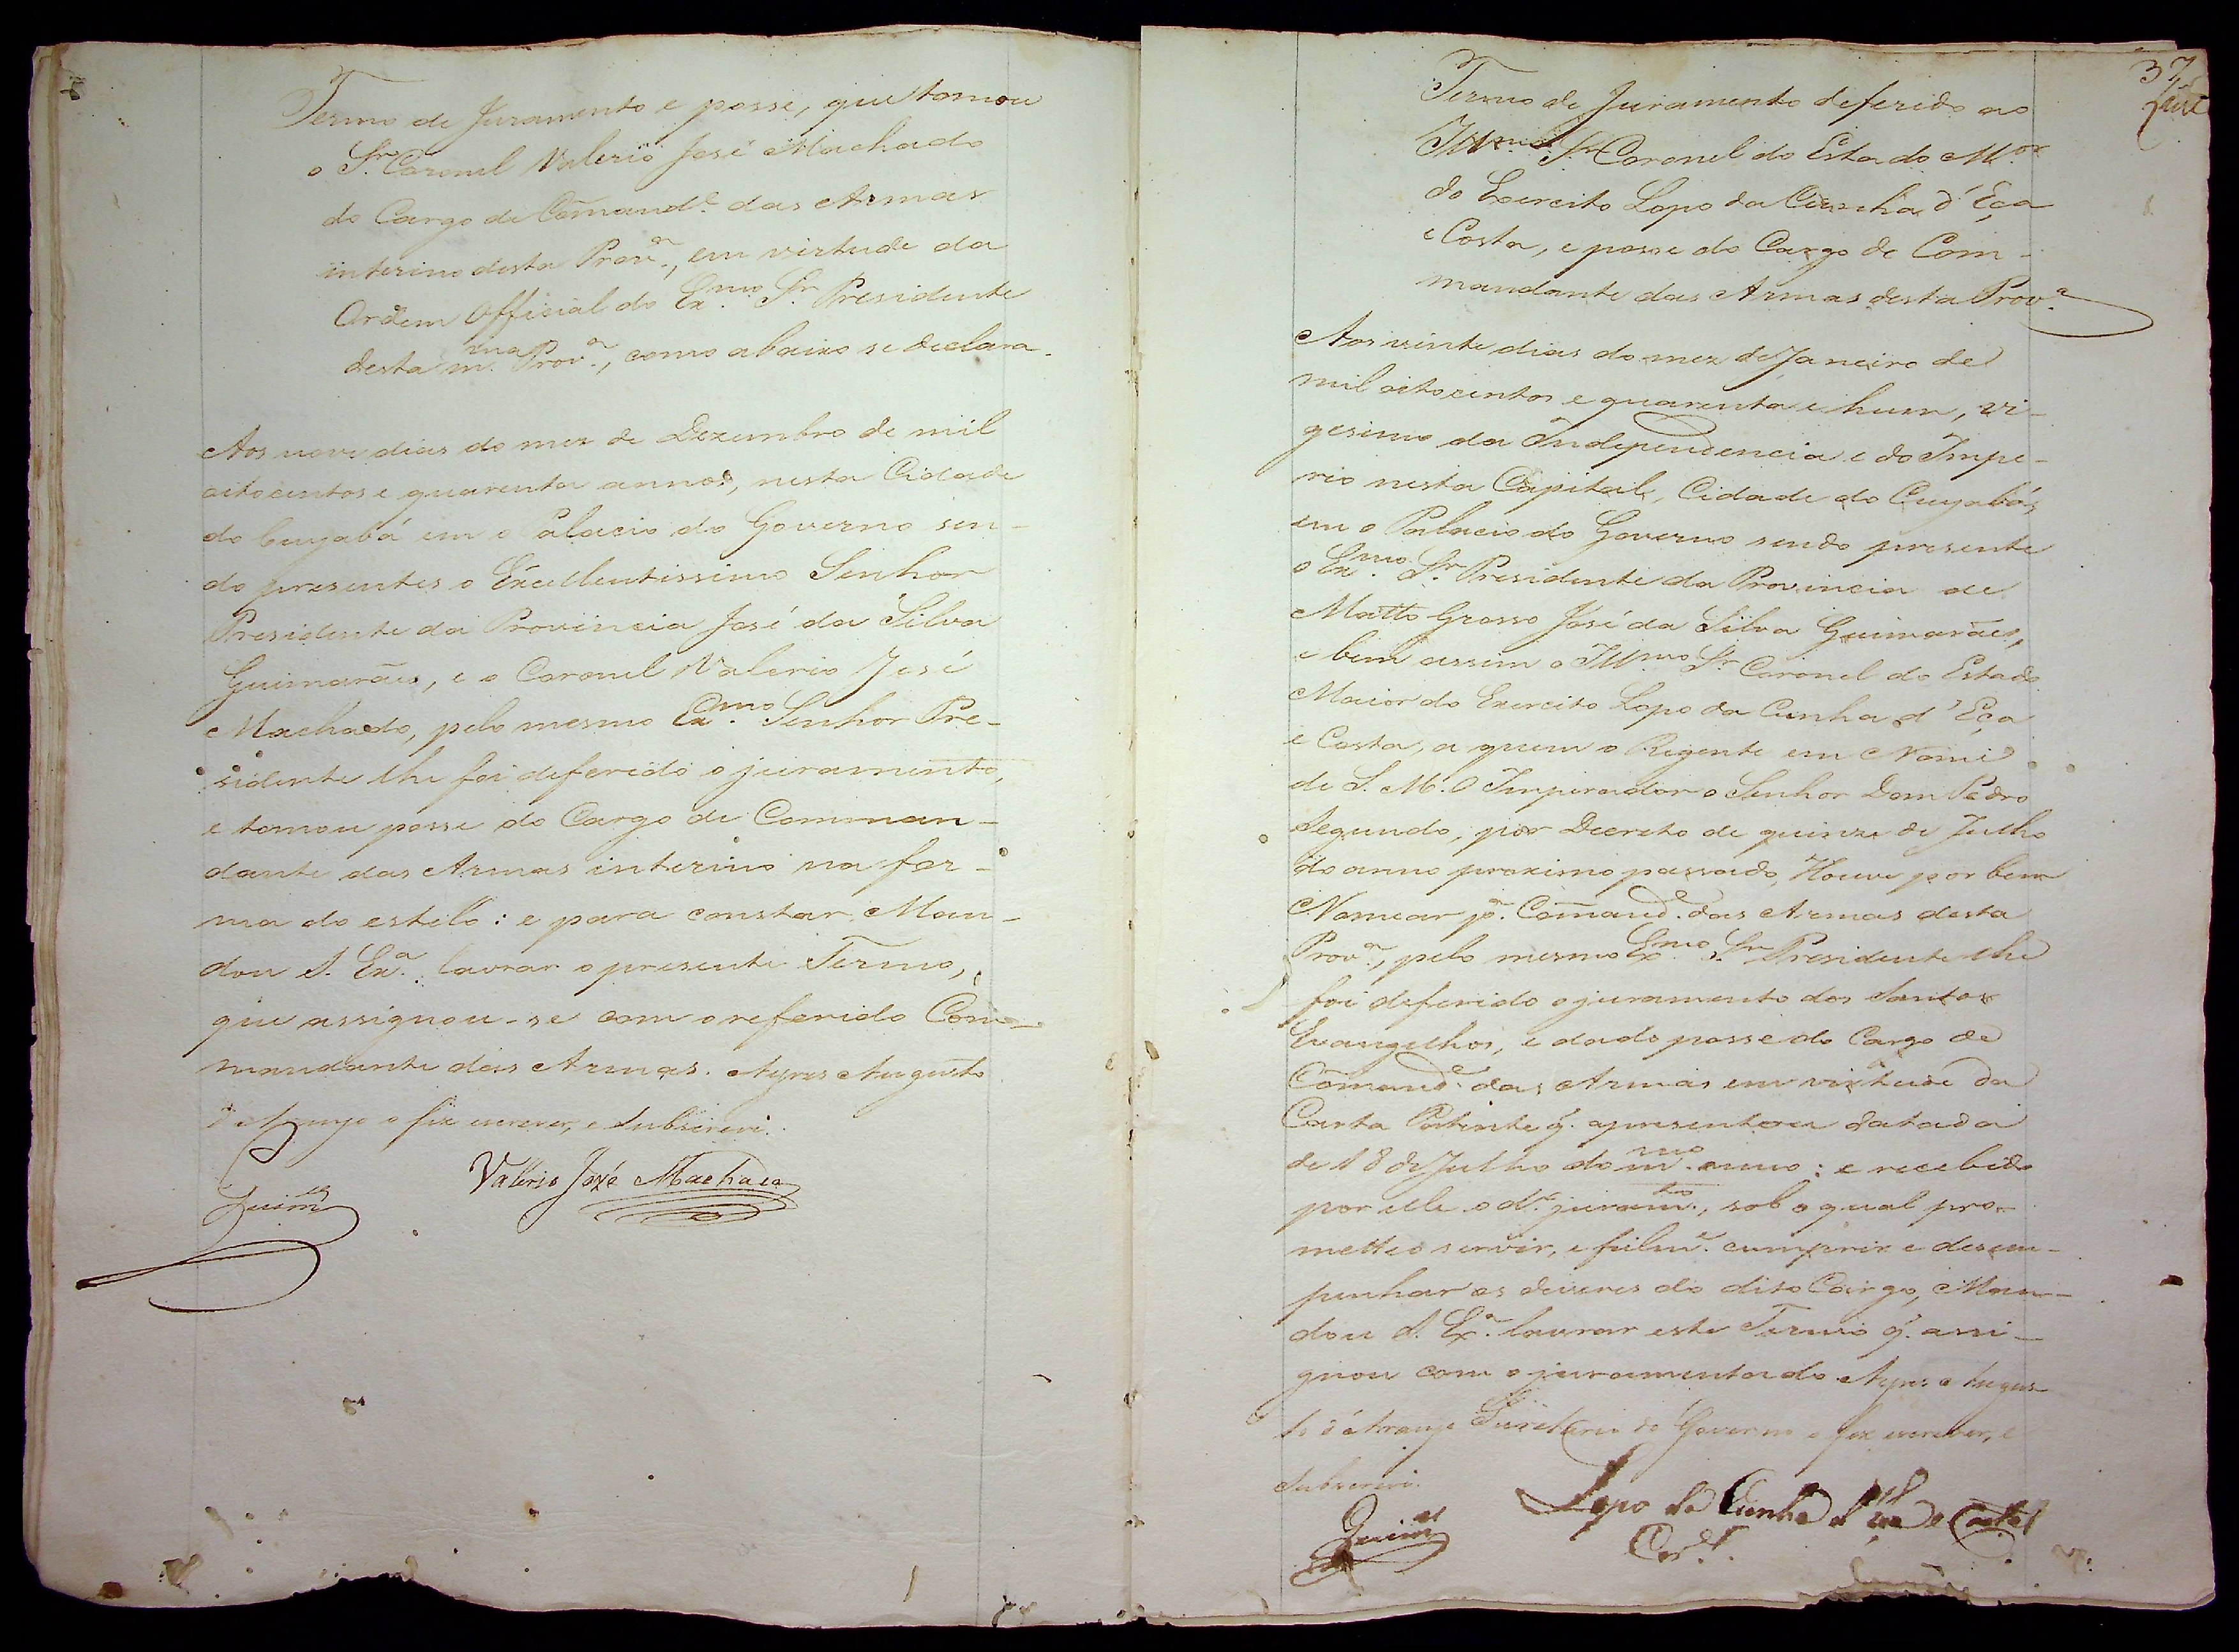 Termo de Juramento e posse, que tomou
o Sr. Coronel Valerio José Machado
do Cargo de Comand.e das Armas
interino desta Prov.a, em virtude da
Ordem Official do Ex.mo Sr. Presidente
desta m.ma Prov.a, como abaixo se declara.
Aos nove dias do mez de Dezembro de mil
oitocentos e quarenta annos, nesta Cidade
do Cuyabá em o Palacio do Governo sen-
do presentes o Excellentissimo Senhor
Presidente da Provincia José da Silva
Guimarães, e o Coronel Valerio José
Machado, pelo mesmo Ex.mo Senhor Pre-
sidente lhe foi deferido o juramento,
e tomou posse do Cargo de Comman-
dante das Armas interino na for-
ma do estilo: e para constar Man-
dou S. Ex.a lavrar o presente Termo,
que assignou-se com o referido Com-
mandante das Armas. Ayres Augusto
d'Araujo o fiz escrever, e subscrevi.
Guim.es
Valerio José Machado
37
Termo de Juramento deferido ao
Ill.mo Sr. Coronel do Estado M.or
do Exercito Lopo da Cunha d'Eça
e Costa, e posse do Cargo de Com-
mandante das Armas desta Prov.a
Aos vinte dias do mez de Janeiro de
mil oitocentos e quarenta e hum, vi-
gesimo da Independencia e do Impe-
rio nesta Capital, Cidade do Cuyabá,
em o Palacio do Governo sendo presente
o Ex.mo Sr. Presidente da Provincia de
Matto Grosso José da Silva Guimarães,
e bem assim o Ill.mo Sr. Coronel do Estado
Maior do Exercito Lopo da Cunha d'Eça
e Costa, a quem o Regente em Nome
de S. M. O Imperador o Senhor Dom Pedro
Segundo, por Decreto de quinze de Julho
do anno proximo passado, Houve por bem
Nomear p.a Comand.e das Armas desta
Prov.a, pelo mesmo Ex.mo Sr. Presidente lhe
foi deferido o juramento dos Santos
Evangelhos, e dado posse do Cargo de
Comand.e das Armas em virtude da
Carta Patente q. apresentou datada
de 18 de Julho do m.mo anno: e recebido
por elle o d.o juram.to, sob o qual pro-
metteo servir, e fielm.e cumprir e desem-
penhar os deveres do dito Cargo, Man-
dou S. Ex.a lavrar este Termo q. assi-
gnou com o juramentado. Ayres Augus-
to d'Araujo Secretario do Governo o fiz escrever, e
subscrevi.
Guim.es
Lopo da Cunha d'Eça e Costa
Cor.el